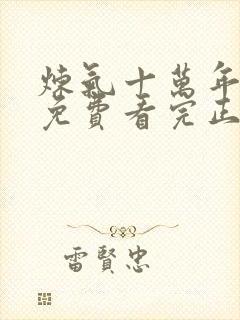 煉氣十萬年
免費看完正
雷賢忠